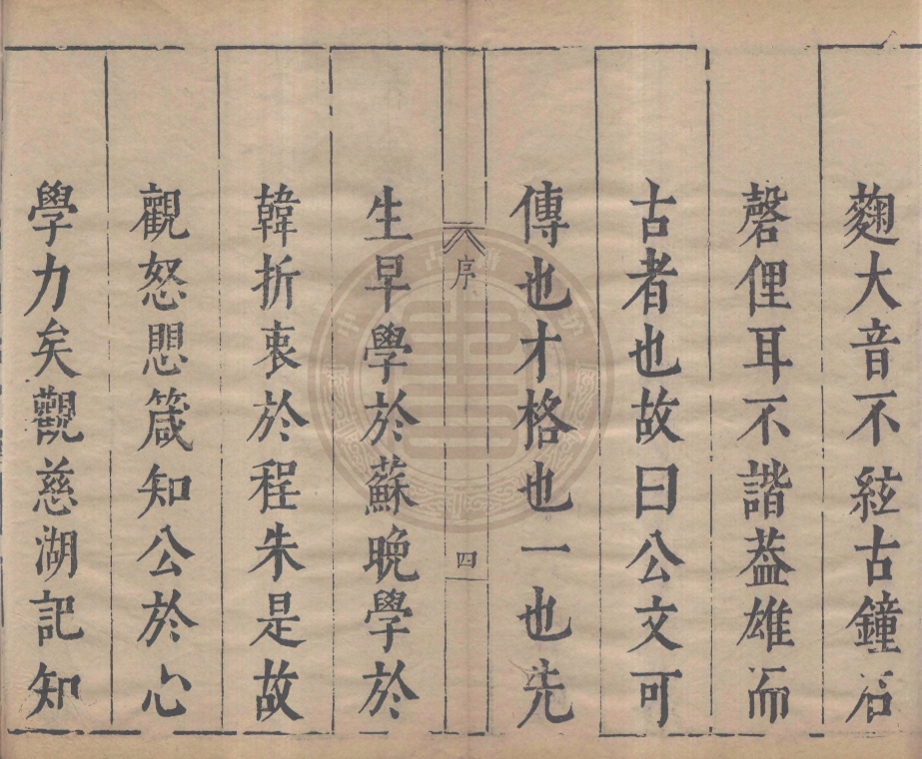 麴大音不絃古鐘石
磬俚耳不諧葢雄而
古者也故曰公文可
傳也才格也一也先
序
四
生早學於蘇晚學於
韓折衷於程朱是故
觀怒愳箴知公於心
學力矣觀慈湖記知